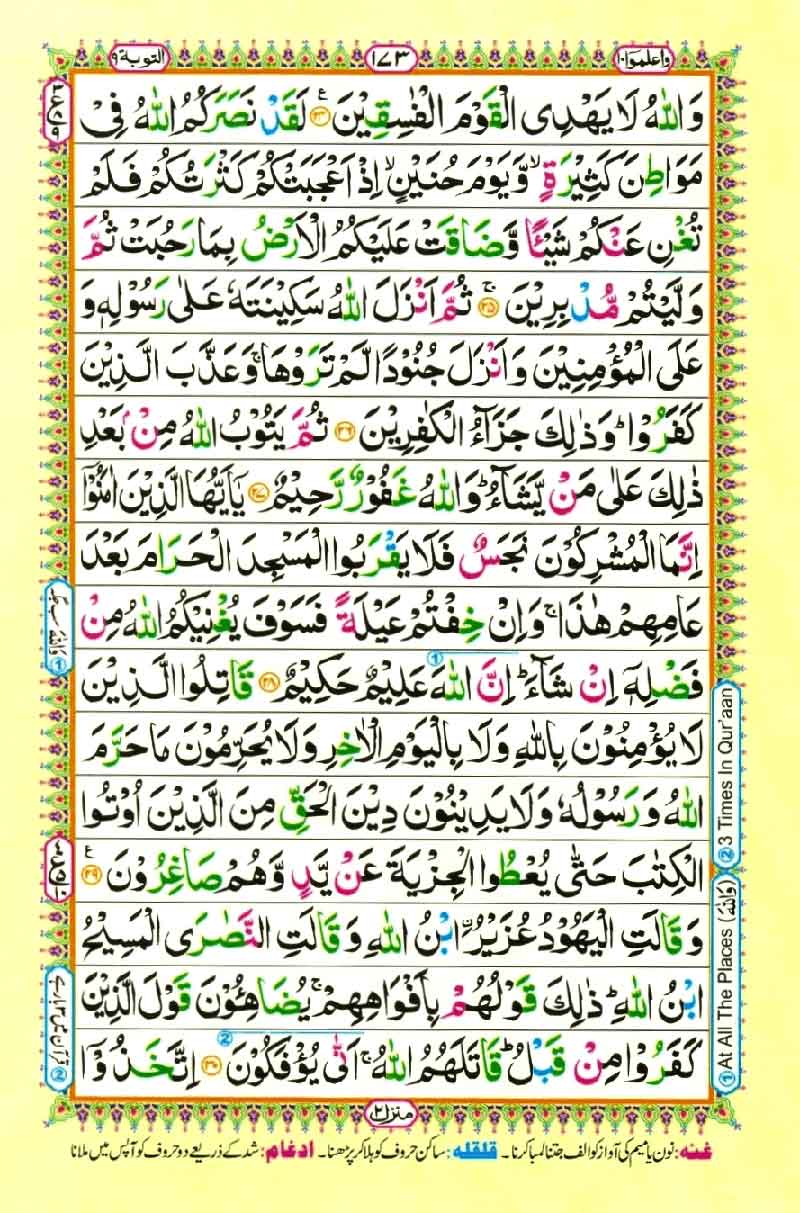 واعلموا ١٠
١٧٣
التوبة ٩
وَاللّٰهُ لَا يَهْدِى الْقَوْمَ الْفٰسِقِيْنَ ۝۲۴ لَقَدْ نَصَرَكُمُ اللّٰهُ فِىْ
مَوَاطِنَ كَثِيْرَةٍ ۙ وَّيَوْمَ حُنَيْنٍ ۙ اِذْ اَعْجَبَتْكُمْ كَثْرَتُكُمْ فَلَمْ
تُغْنِ عَنْكُمْ شَيْـًٔا وَّضَاقَتْ عَلَيْكُمُ الْاَرْضُ بِمَا رَحُبَتْ ثُمَّ
وَلَّيْتُمْ مُّدْبِرِيْنَ ۝۲۵ ثُمَّ اَنْزَلَ اللّٰهُ سَكِيْنَتَهٗ عَلٰى رَسُوْلِهٖ وَ
عَلَى الْمُؤْمِنِيْنَ وَاَنْزَلَ جُنُوْدًا لَّمْ تَرَوْهَا ۚ وَعَذَّبَ الَّذِيْنَ
كَفَرُوْا ؕ وَذٰلِكَ جَزَآءُ الْكٰفِرِيْنَ ۝۲۶ ثُمَّ يَتُوْبُ اللّٰهُ مِنْۢ بَعْدِ
ذٰلِكَ عَلٰى مَنْ يَّشَآءُ ؕ وَاللّٰهُ غَفُوْرٌ رَّحِيْمٌ ۝۲۷ يٰۤاَيُّهَا الَّذِيْنَ اٰمَنُوْۤا
اِنَّمَا الْمُشْرِكُوْنَ نَجَسٌ فَلَا يَقْرَبُوا الْمَسْجِدَ الْحَرَامَ بَعْدَ
عَامِهِمْ هٰذَا ۚ وَاِنْ خِفْتُمْ عَيْلَةً فَسَوْفَ يُغْنِيْكُمُ اللّٰهُ مِنْ
فَضْلِهٖۤ اِنْ شَآءَ ؕ اِنَّ اللّٰهَ عَلِيْمٌ حَكِيْمٌ ۝۲۸ قَاتِلُوا الَّذِيْنَ
لَا يُؤْمِنُوْنَ بِاللّٰهِ وَلَا بِالْيَوْمِ الْاٰخِرِ وَلَا يُحَرِّمُوْنَ مَا حَرَّمَ
اللّٰهُ وَرَسُوْلُهٗ وَلَا يَدِيْنُوْنَ دِيْنَ الْحَقِّ مِنَ الَّذِيْنَ اُوْتُوا
الْكِتٰبَ حَتّٰى يُعْطُوا الْجِزْيَةَ عَنْ يَّدٍ وَّهُمْ صَاغِرُوْنَ ۝۲۹
وَقَالَتِ الْيَهُوْدُ عُزَيْرُ ۨ ابْنُ اللّٰهِ وَقَالَتِ النَّصٰرَى الْمَسِيْحُ
ابْنُ اللّٰهِ ؕ ذٰلِكَ قَوْلُهُمْ بِاَفْوَاهِهِمْ ۚ يُضَاهِئُوْنَ قَوْلَ الَّذِيْنَ
كَفَرُوْا مِنْ قَبْلُ ؕ قَاتَلَهُمُ اللّٰهُ ۚ اَنّٰى يُؤْفَكُوْنَ ۝۳۰ اِتَّخَذُوْۤا
① At All The Places (وَاللّٰهُ) ② 3 Times In Qur'aan
منزل ٢
غنه: نون یا میم کی آواز کو الف جتنا لمبا کرنا۔ قلقله: ساکن حروف کو ہلا کر پڑھنا۔ ادغام: شد کے ذریعے دو حروف کو آپس میں ملانا